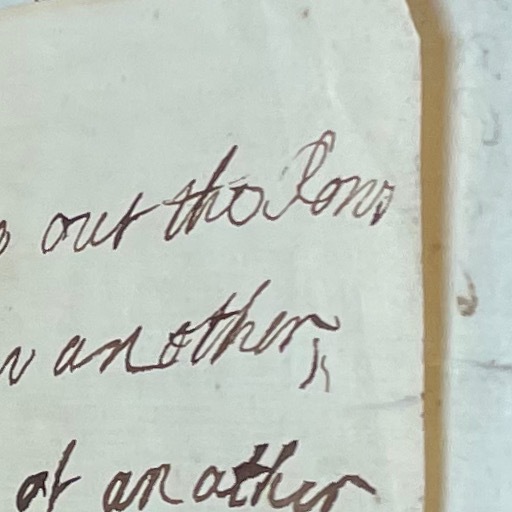 out the Pow
another
at another